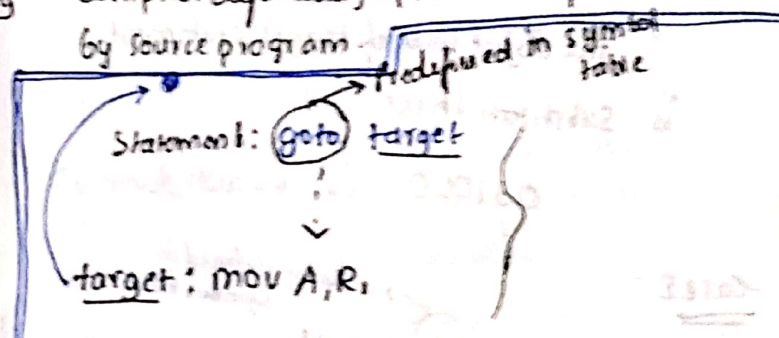 by source program
Predefined in symbol
table
Statement: goto target
target: mov A, R1